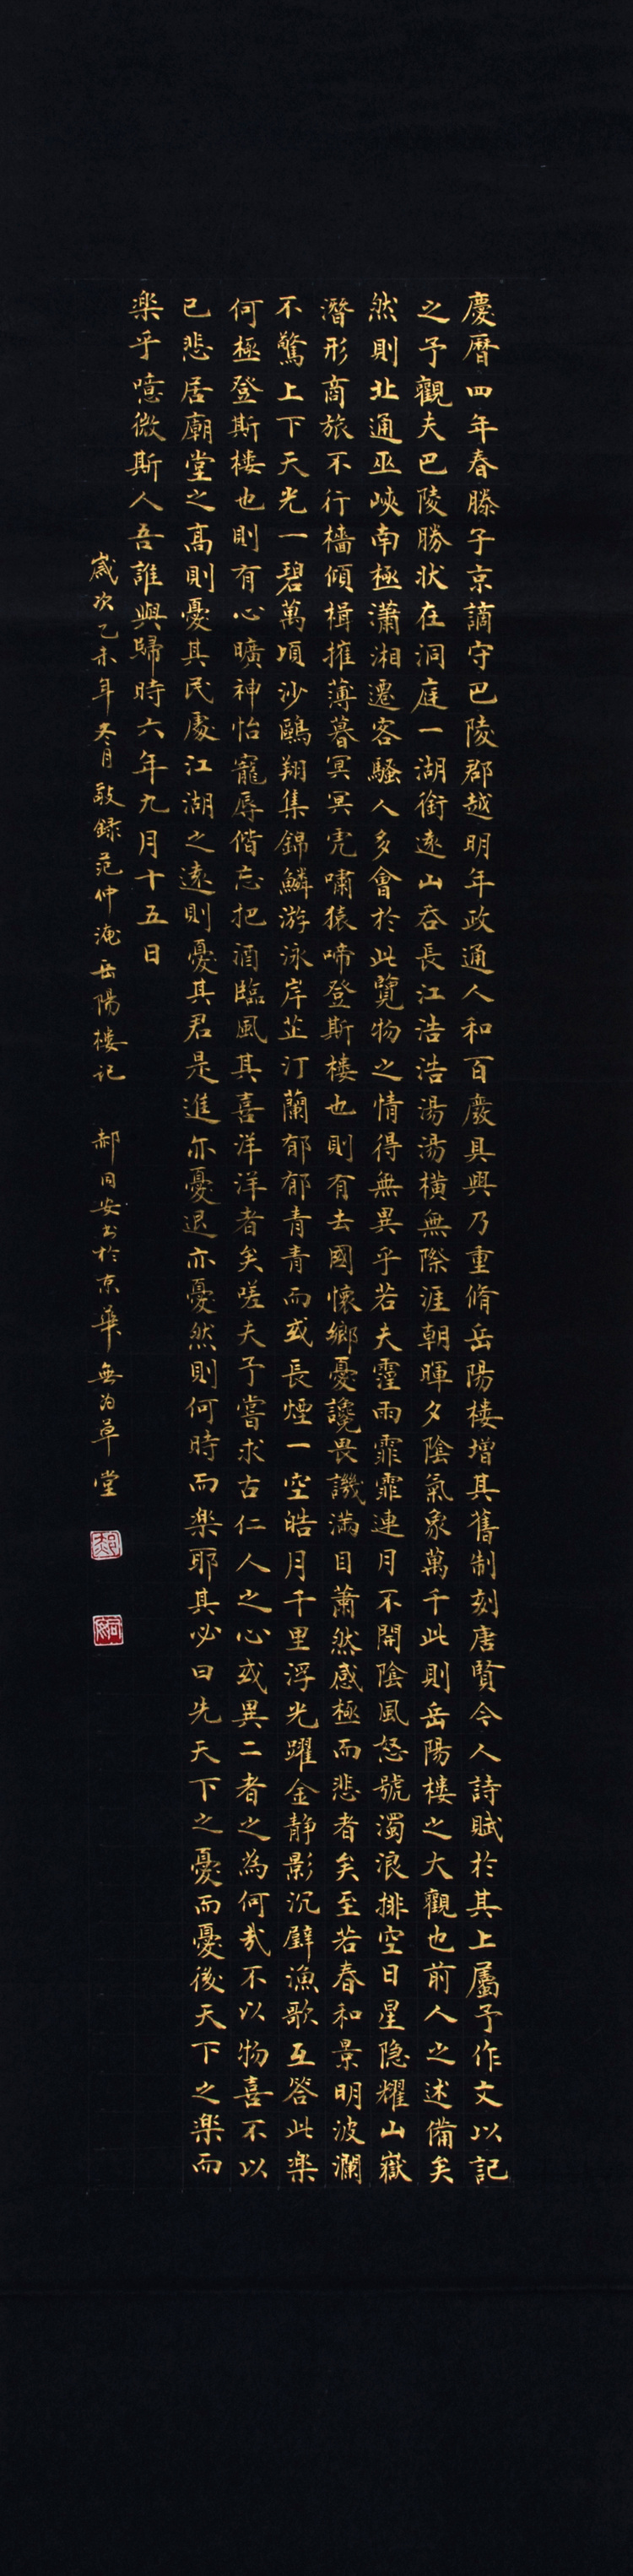 慶曆四年春滕子京謫守巴陵郡越明年政通人和百廢具興乃重脩岳陽楼增其舊制刻唐賢今人詩賦於其上屬予作文以記
之予觀夫巴陵勝状在洞庭一湖銜遠山吞長江浩浩湯湯横無際涯朝暉夕陰氣象萬千此則岳陽樓之大觀也前人之述備矣
然則北通巫峽南極瀟湘遷客騷人多會於此覽物之情得無異乎若夫霪雨霏霏連月不開陰風怒號濁浪排空日星隐耀山嶽
潛形商旅不行檣傾楫摧薄暮冥冥虎嘯猿啼登斯楼也則有去國懷鄉憂讒畏譏滿目蕭然感極而悲者矣至若春和景明波瀾
不驚上下天光一碧萬頃沙鷗翔集錦鱗游泳岸芷汀蘭郁郁青青而或長煙一空皓月千里浮光躍金静影沉璧漁歌互答此楽
何極登斯樓也則有心曠神怡寵辱偕忘把酒臨風其喜洋洋者矣嗟夫予嘗求古仁人之心或異二者之為何哉不以物喜不以
己悲居廟堂之高則憂其民處江湖之遠則憂其君是進亦憂退亦憂然則何時而楽耶其必曰先天下之憂而憂後天下之楽而
楽乎噫微斯人吾誰與歸時六年九月十五日
歲次乙未年冬月敬錄范仲淹岳陽樓记 郝同安书於京華無为草堂